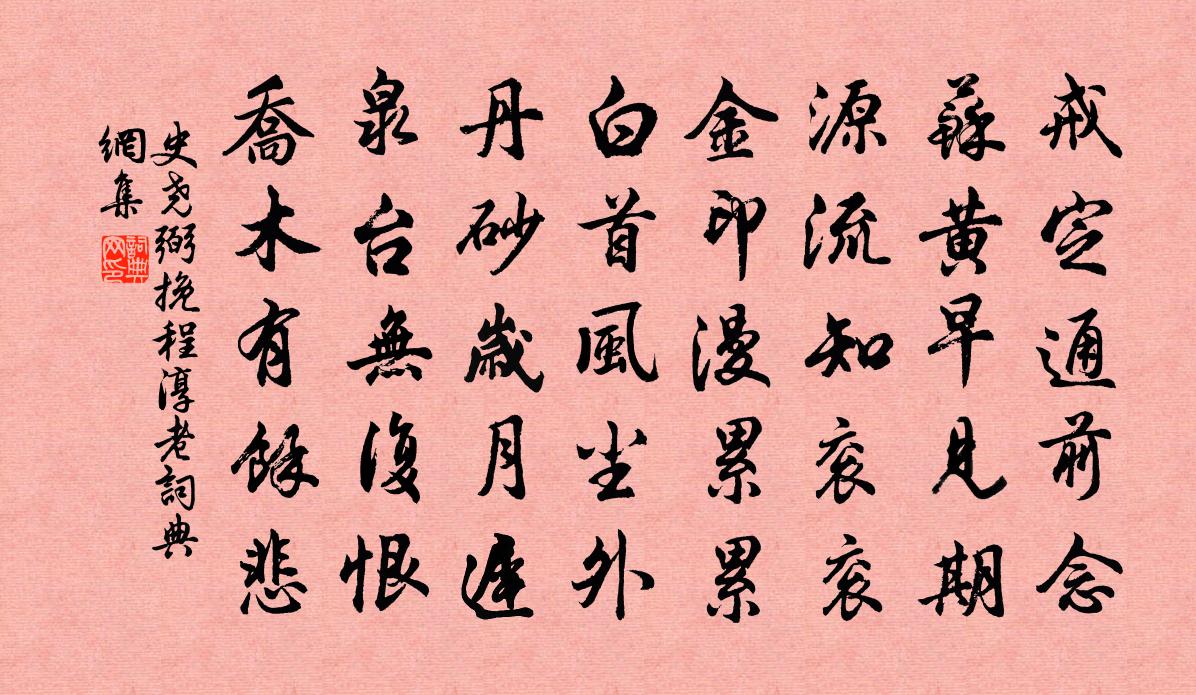 戒定通前念
蘇黄早見期
源流知衮衮
金印漫累累
白首風尘外
丹砂歲月遲
泉台無復恨
喬木有餘悲
史尧弼挽程淳老詞典
網集
詞典
网印